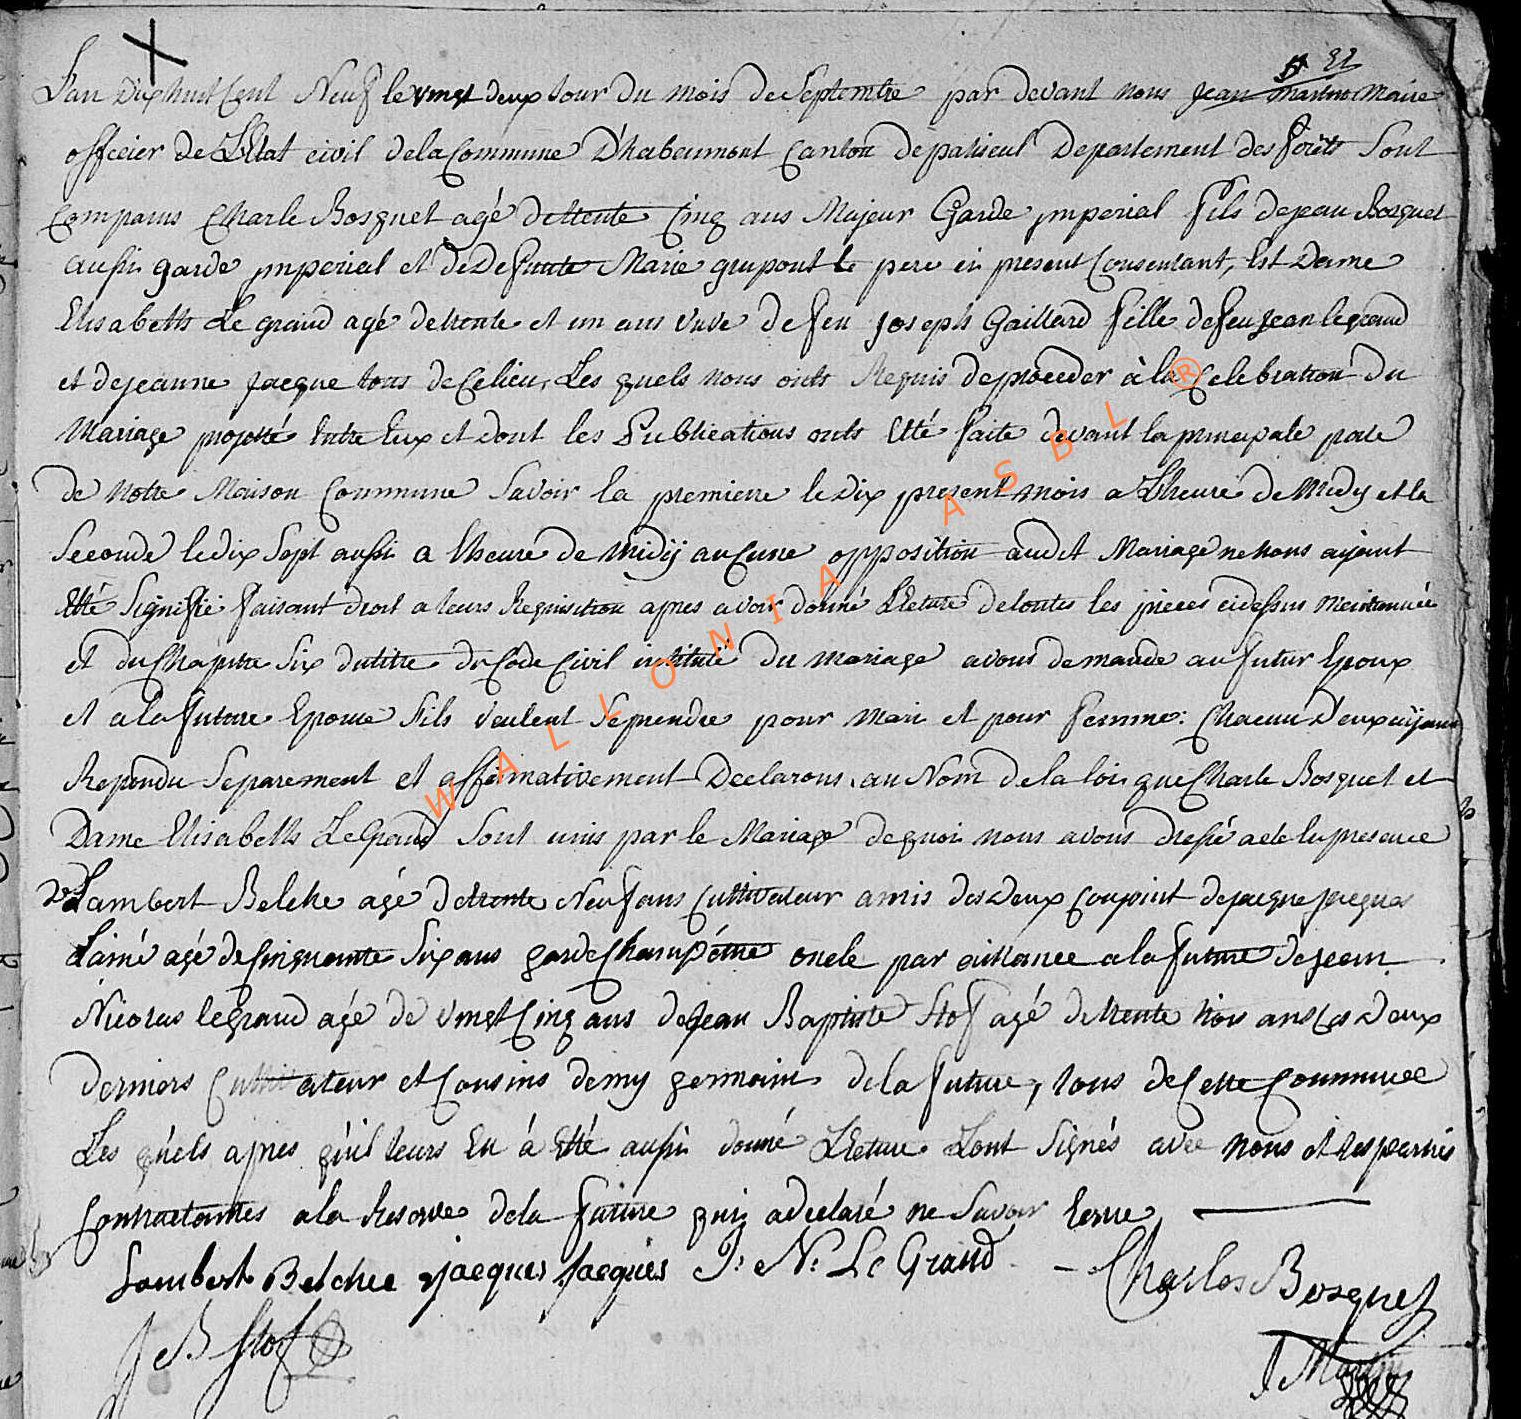 22
L'an Dix huit Cent Neuf le vingt deux Jour du mois de Septembre par devant nous Jean Martin Maire
officier de L'Etat civil de la Commune D'habaumont Canton de paliseul Departement des forêts Sont
Comparus Charle Bosquet agé de trente Cinq ans Majeur Garde imperial Fils de jean Bosquet
aussi garde imperial et de Defunte Marie grupont le pere ici present Consentant, Et Dame
Elisabeth Le grand agé de trente et un ans vuve de feu joseph Gaillard Fille de feu jean legrand
et de jeanne jacque tous de Celieu, Les quels nous onts Requis de proceder à la Celebration du
Mariage projetté Entre Eux et dont les Publications onts Etté faite devant la principale porte
de Notte Maison Commune Savoir la premiere le dix present mois a L'heure de Midy et la
Seconde le dix Sept aussi a l'heure de Midij aucune opposition audit Mariage ne nous aijant
Etté Signifié faisant droit a leurs Requisition apres avoir donné Lecture de toutes les pieces cidessus mentionnée
et du Chapitre Six du titre du Code Civil intitulé du Mariage avons demande au futur Epoux
et a la future Epouse S'ils veulent Se prendre pour Mari et pour femme: Chacun D'eux aijant
Repondu Separement et affirmativement Declarons au Nom de la loi que Charle Bosquet et
Dame Elisabeth Le Grand Sont unis par le Mariage de quoi nous avons dressé acte En presence
De Lambert Belche agé de trente Neuf ans Cultivateur amis des deux Conjoint de jacque jacques
L'ainé agé de Cinquante Six ans garde Champétre oncle par alliance a la future de jean
Nicolas legrand agé de vingt Cinq ans de Jean Baptiste Stof agé de trente trois ans Ces Deux
derniers Cultivateur et Cousins demy germains de la future, tous de Cette Commune
Les quels apres qu'il leurs En á Etté aussi donné Lecture L'ont Signés avec nous et les parties
Contractantes a la Reserve de la future qui a declaré ne Savoir Ecrire
Lambert Belchee jacques jacques J: N: Le Grand Charles Bosquet
J B Stof
J Martin
WALLONIA ASBL ®